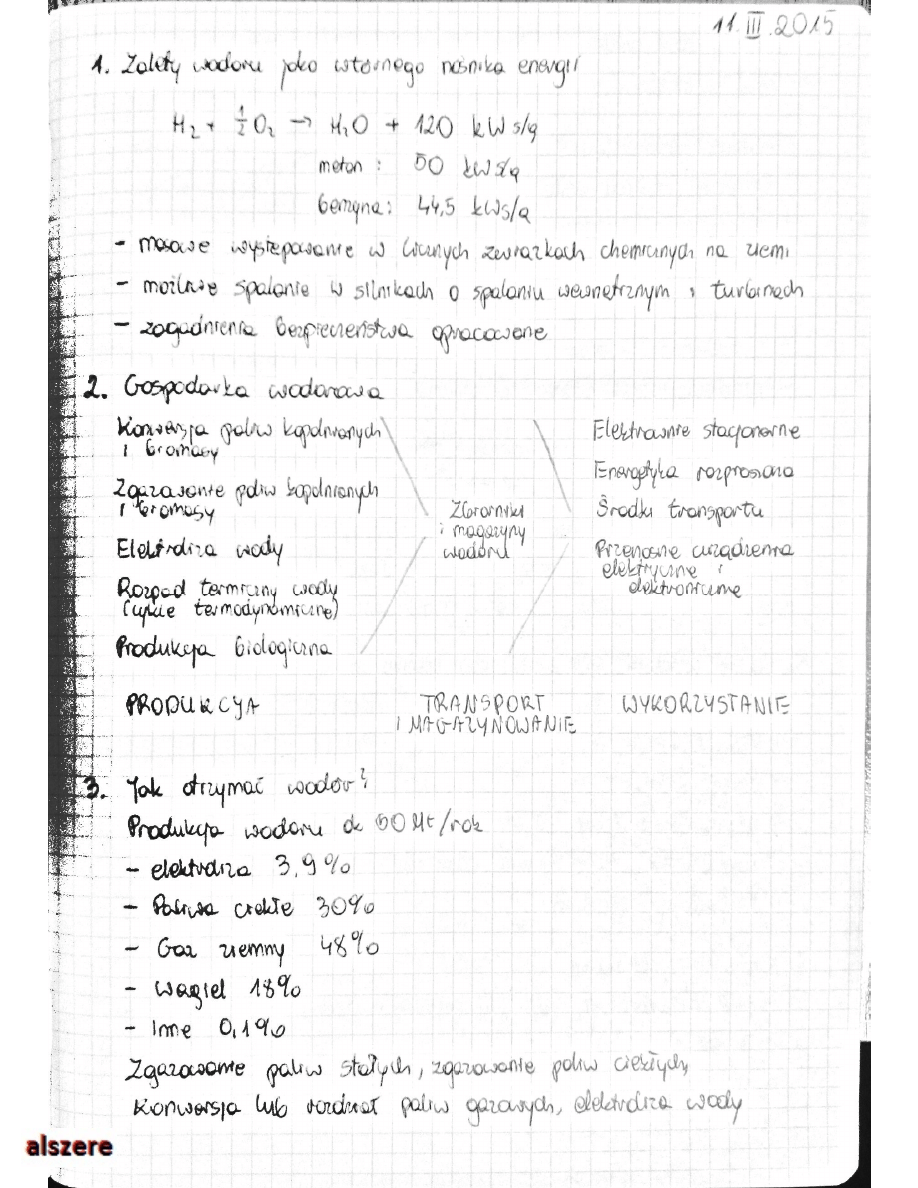 11.III.2015
1. Zalety wodoru jako wtórnego nośnika energii
H₂ + ½O₂ → H₂O + 120 kWs/g
metan : 50 kWs/g
benzyna : 44,5 kWs/g
- masowe występowanie w licznych związkach chemicznych na ziemi
- możliwe spalanie w silnikach o spalaniu wewnętrznym i turbinach
- zagadnienia bezpieczeństwa opracowane
2. Gospodarka wodorowa
Konwersja paliw kopalnianych
i biomasy
Zgazowanie paliw kopalnianych
i biomasy
Elektroliza wody
Rozpad termiczny wody
(cykle termodynamiczne)
Produkcja biologiczna
Zbiorniki
i magazyny
wodoru
Elektrownie stacjonarne
Energetyka rozproszona
Środki transportu
Przenośne urządzenia
elektryczne i
elektroniczne
PRODUKCJA
TRANSPORT
I MAGAZYNOWANIE
WYKORZYSTANIE
3. Jak otrzymać wodór?
Produkcja wodoru ok 50 Mt/rok
- elektroliza 3,9%
- Paliwa ciekłe 30%
- Gaz ziemny 48%
- Węgiel 18%
- Inne 0,1%
Zgazowanie paliw stałych, zgazowanie paliw ciekłych,
Konwersja lub rozdział paliw gazowych, elektroliza wody
alszere